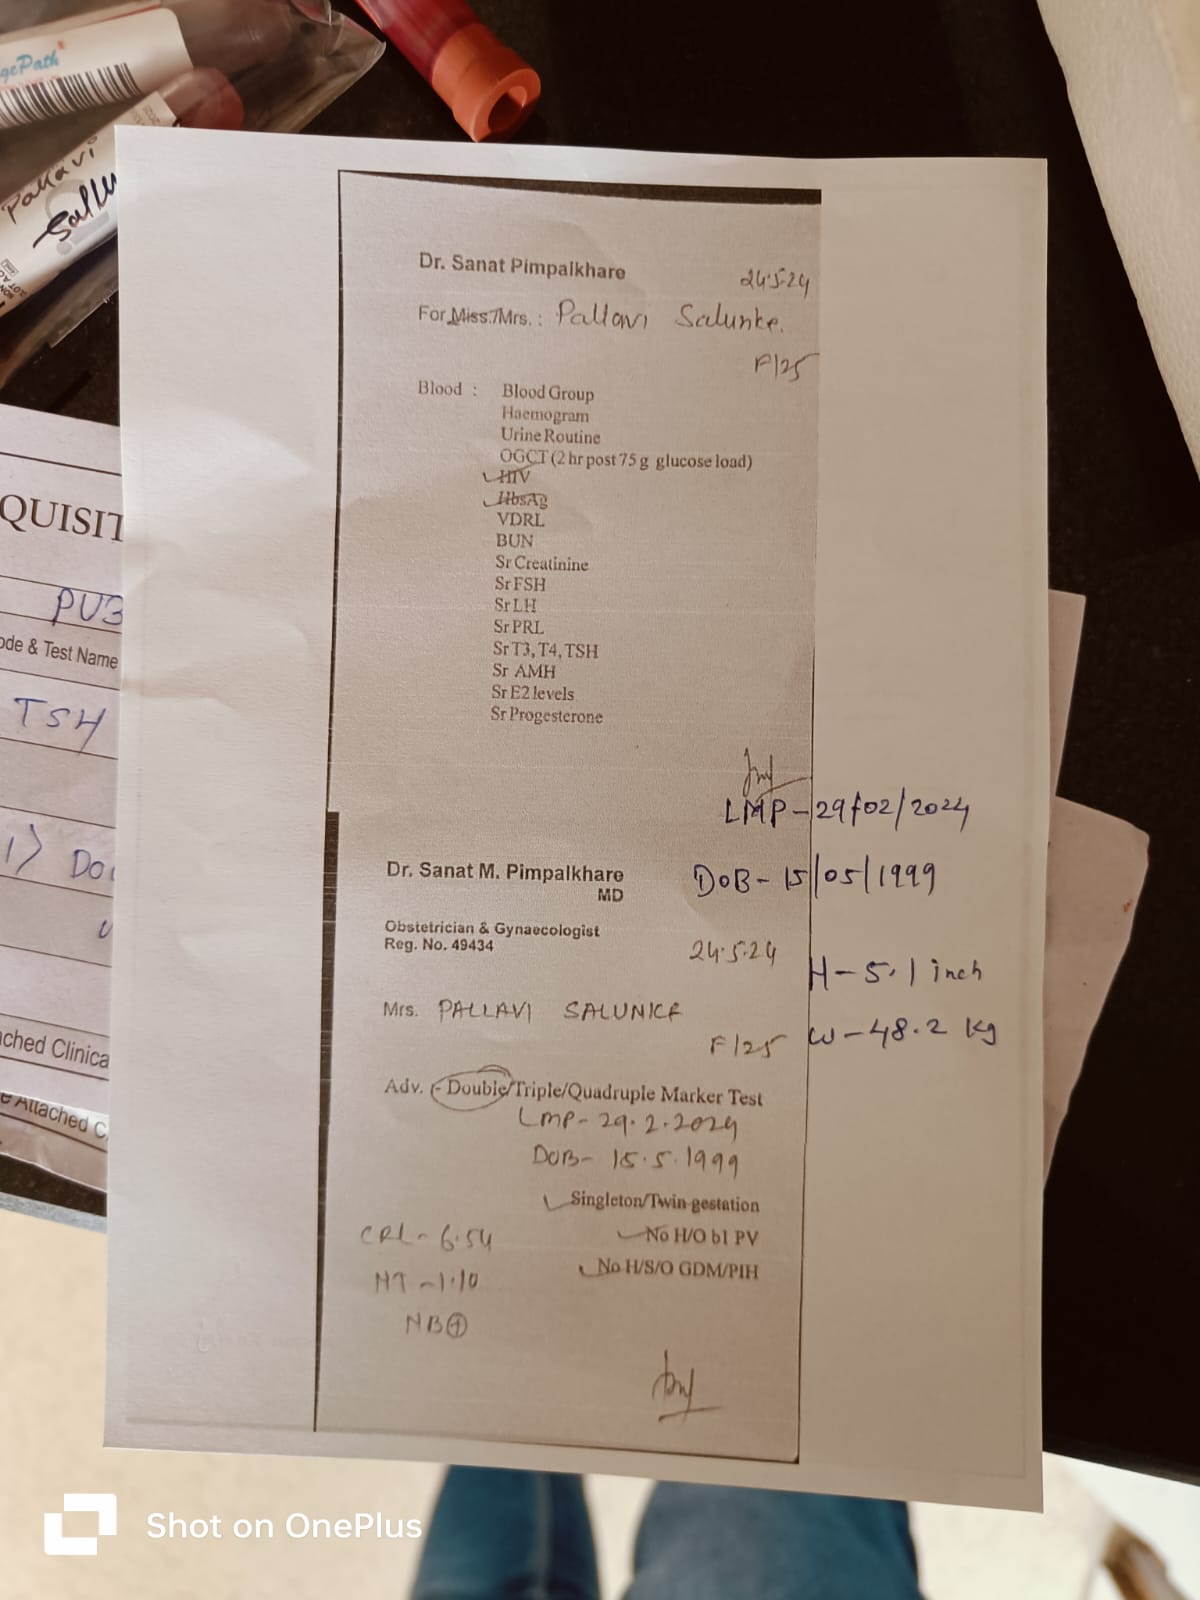 gePath
Pallavi
QUISIT
PU3
ode & Test Name
TSH
1)
ched Clinica
e Attached C
Dr. Sanat Pimpalkhare
24.5.24
For Miss./Mrs. : Pallavi Salunke.
F/25
Blood : Blood Group
Haemogram
Urine Routine
OGCT (2 hr post 75 g glucose load)
HIV
HbsAg
VDRL
BUN
Sr Creatinine
Sr FSH
Sr LH
Sr PRL
Sr T3, T4, TSH
Sr AMH
Sr E2 levels
Sr Progesterone
LMP - 29/02/2024
Dr. Sanat M. Pimpalkhare
MD
DOB - 15/05/1999
Obstetrician & Gynaecologist
Reg. No. 49434
24.5.24
H - 5.1 inch
Mrs. PALLAVI SALUNKE
F/25
W - 48.2 kg
Adv. - Double/Triple/Quadruple Marker Test
LMP - 29.2.2024
DOB - 15.5.1999
Singleton/Twin gestation
CRL - 6.54
No H/O bl PV
NT - 1.10
No H/S/O GDM/PIH
NB +
Shot on OnePlus